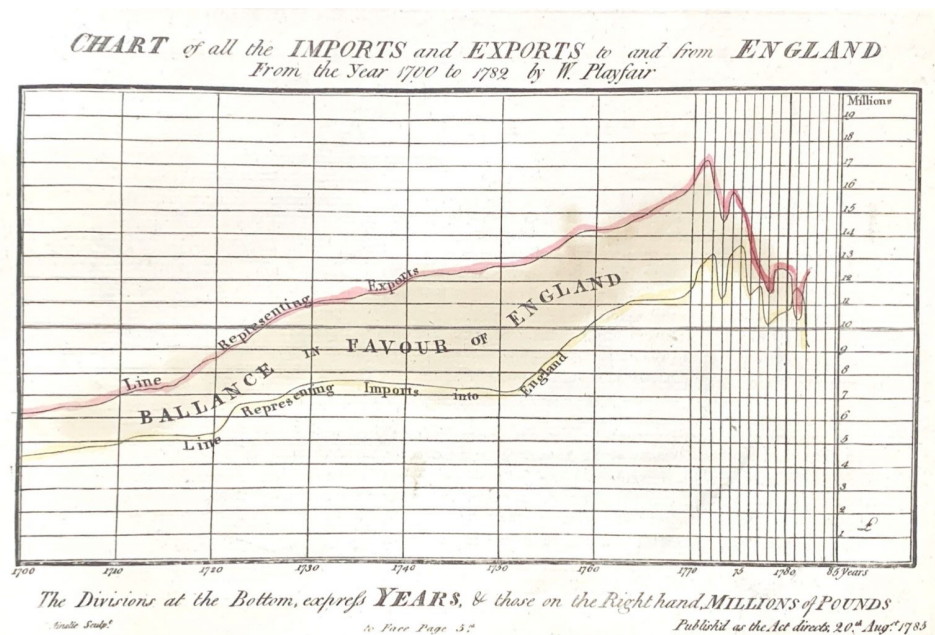 CHART of all the IMPORTS and EXPORTS to and from ENGLAND
From the Year 1700 to 1782 by W. Playfair
Millions
19
18
17
16
15
14
13
12
11
10
9
8
7
6
5
4
3
2
1
£
Line Representing Exports
BALLANCE IN FAVOUR OF ENGLAND
Line Representing Imports into England
1700 1710 1720 1730 1740 1750 1760 1770 75 1780 85 Years
The Divisions at the Bottom, expreſs YEARS, & those on the Right hand, MILLIONS of POUNDS
Ainslie Sculpt. to Face Page 5th Publish'd as the Act directs, 20th Augt. 1785